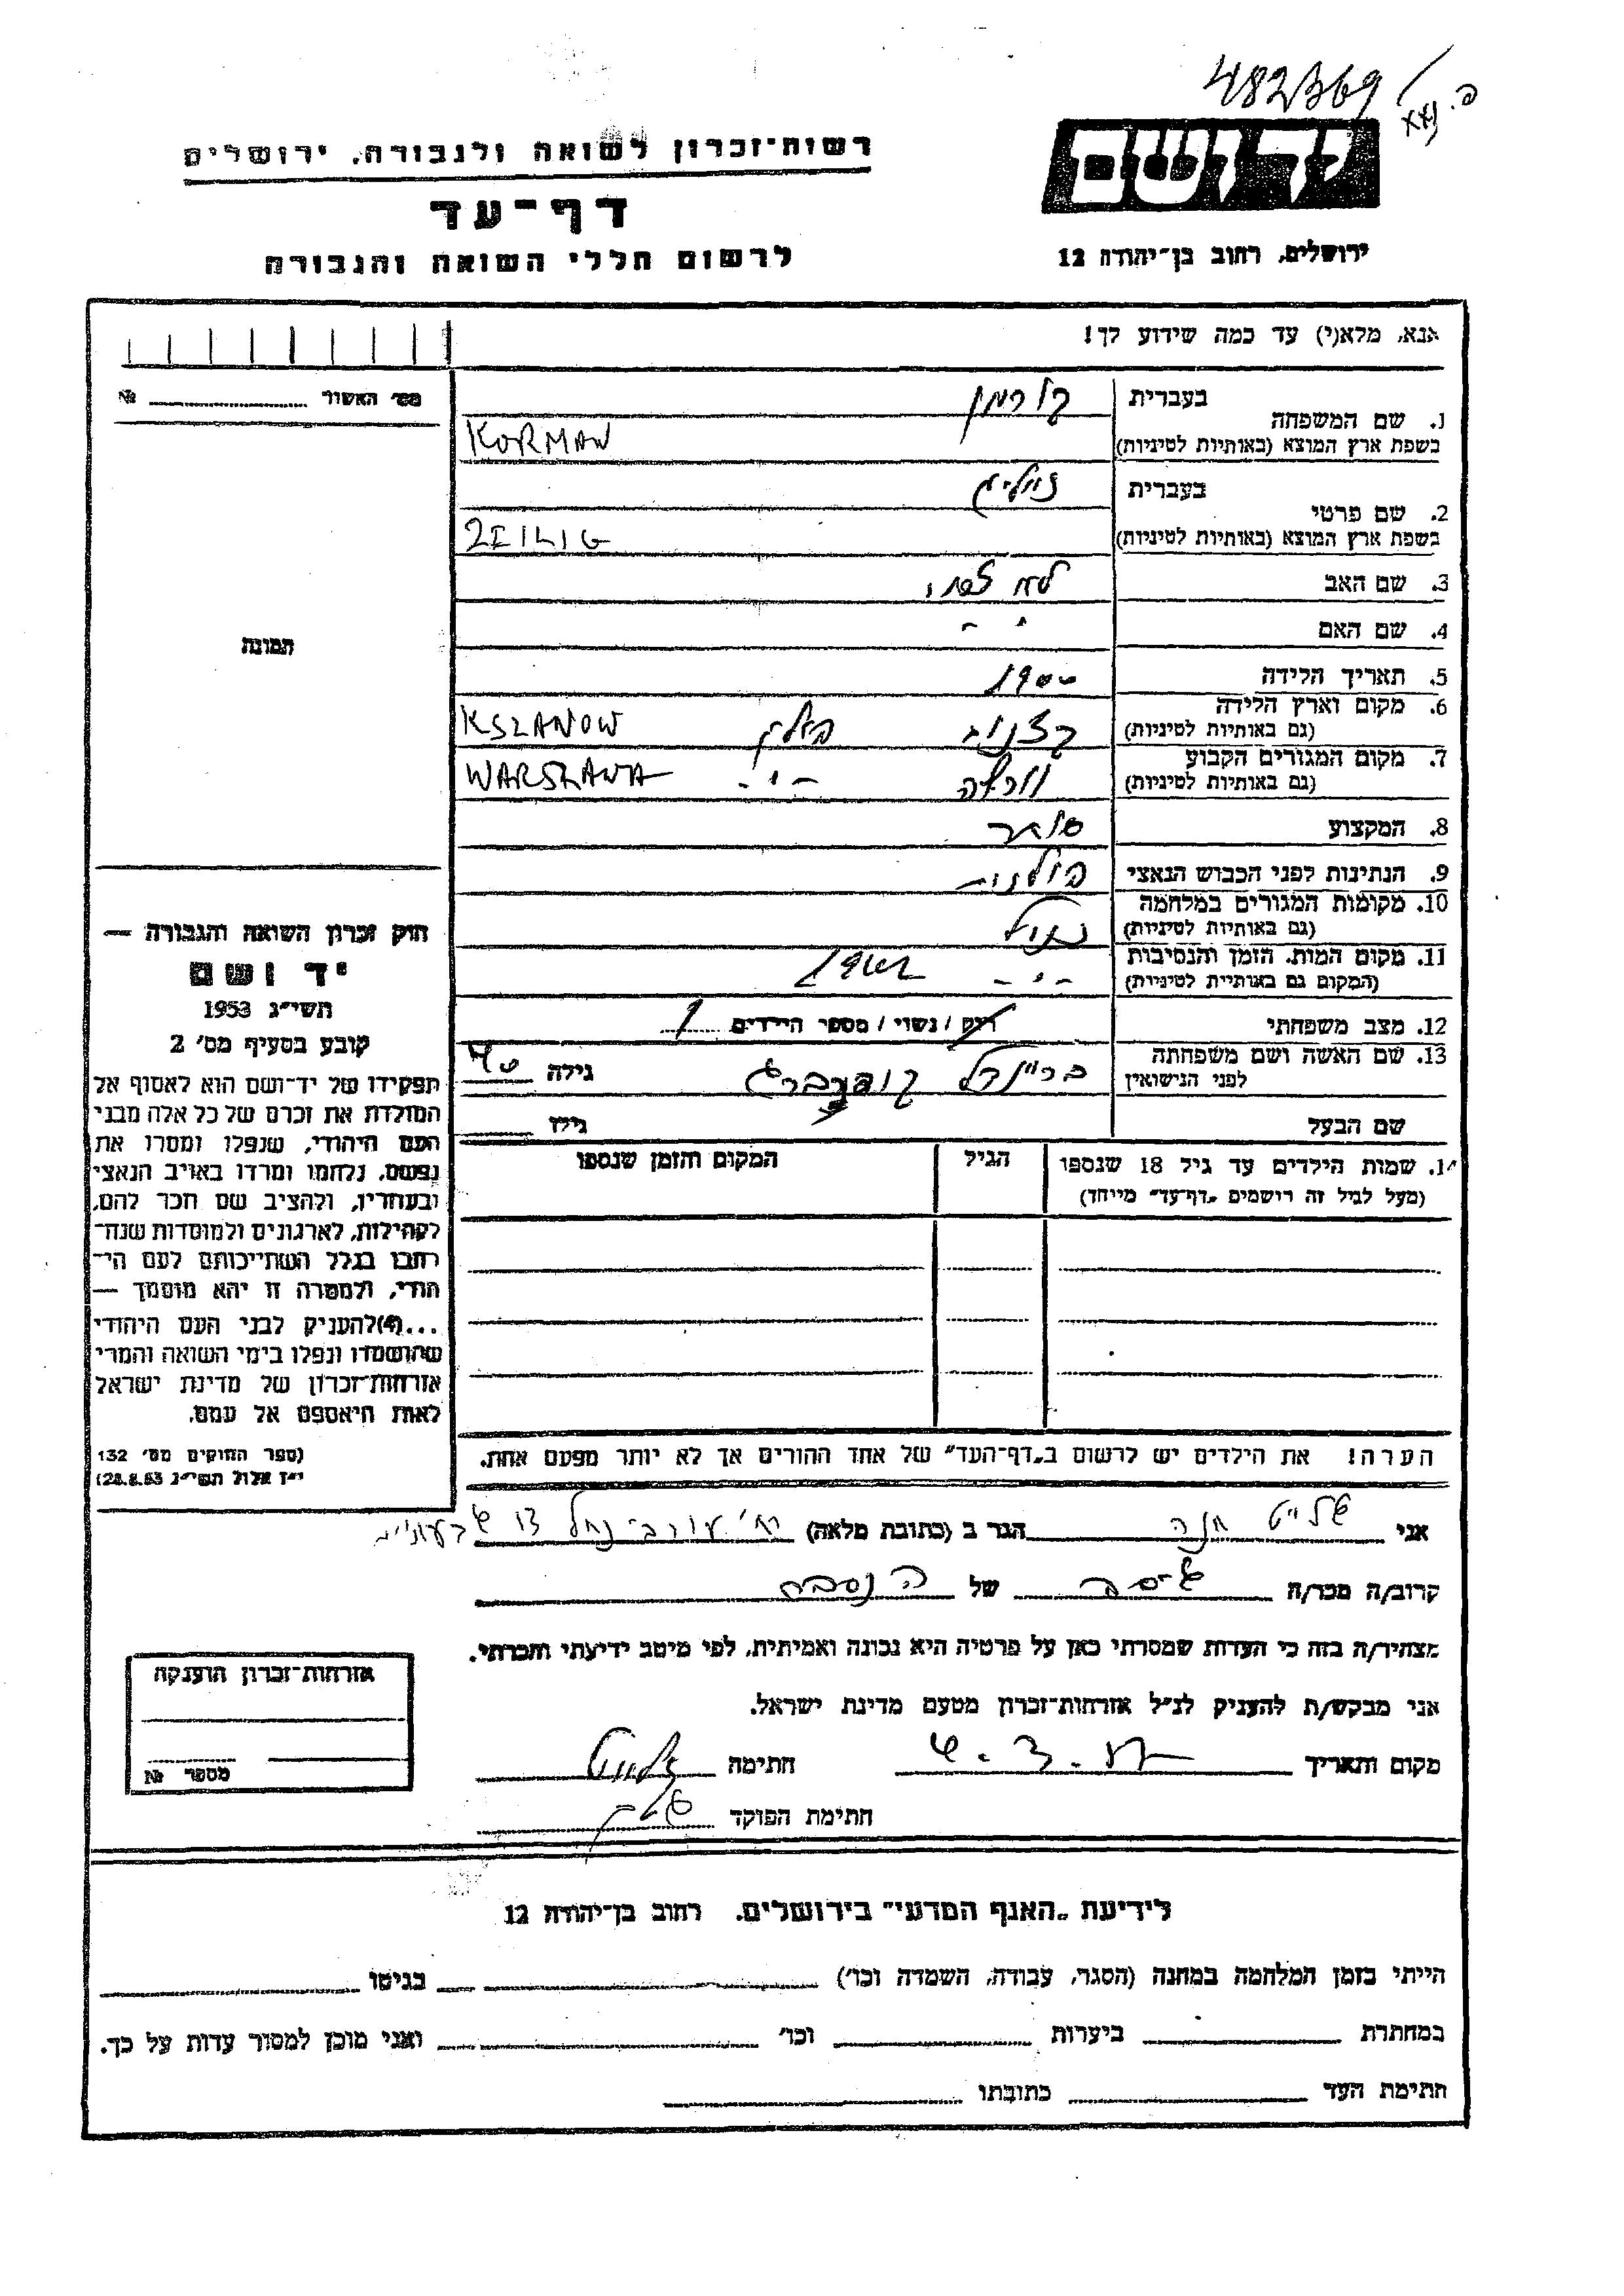 482/369
יד ושם
רשות-זכרון לשואה ולגבורה, ירושלים
דף-עד
ירושלים, רחוב בן-יהודה 12
לרשום חללי השואה והגבורה
אנא, מלא(י) עד כמה שידוע לך!
מס׳ האשור № 
1. שם המשפחה
בעברית קורמן
בשפת ארץ המוצא (באותיות לטיניות) KORMAN
2. שם פרטי
בעברית זייליג
בשפת ארץ המוצא (באותיות לטיניות) ZEILIG
3. שם האב
4. שם האם
תמונה
5. תאריך הלידה 1900
6. מקום וארץ הלידה
(גם באותיות לטיניות) קצנוב פולין KSZANOW
7. מקום המגורים הקבוע
(גם באותיות לטיניות) וורשה -"- WARSZAWA
8. המקצוע סוחר
9. הנתינות לפני הכבוש הנאצי פולנית
10. מקומות המגורים במלחמה
(גם באותיות לטיניות)
11. מקום המות, הזמן והנסיבות
(המקום גם באותיות לטיניות) -"-
12. מצב משפחתי רוק / נשוי / מספר הילדים 1
13. שם האשה ושם משפחתה
לפני הנישואין ברײנדל גילה 40
שם הבעל גילו
14. שמות הילדים עד גיל 18 שנספו
(מעל לגיל זה רושמים „דף-עד״ מייחד)
הגיל
המקום והזמן שנספו
הערה! את הילדים יש לרשום ב„דף-העד״ של אחד ההורים אך לא יותר מפעם אחת.
חוק זכרון השואה והגבורה —
יד ושם
תשי״ג 1953
קובע בסעיף מס׳ 2
תפקידו של יד-ושם הוא לאסוף אל
המולדת את זכרם של כל אלה מבני
העם היהודי, שנפלו ומסרו את
נפשם, נלחמו ומרדו באויב הנאצי
ובעוזריו, ולהציב שם וזכר להם,
לקהילות, לארגונים ולמוסדות שנח-
רבו בגלל השתייכותם לעם הי-
הודי, ולמטרה זו יהא מוסמך —
...(4) להעניק לבני העם היהודי
שהושמדו ונפלו בימי השואה והמרי
אזרחות-זכרון של מדינת ישראל
לאות היאספם אל עמם.
(ספר החוקים מס׳ 132
י״ז אלול תשי״ג 28.8.53)
אני חנה הגר ב (כתובת מלאה)
קרוב/ה מכר/ה של הנספה
מצהיר/ה בזה כי העדות שמסרתי כאן על פרטיה היא נכונה ואמיתית, לפי מיטב ידיעתי והכרתי.
אני מבקש/ת להעניק לנ״ל אזרחות-זכרון מטעם מדינת ישראל.
מקום ותאריך חתימה
חתימת הפוקד
אזרחות-זכרון הוענקה
מספר №
לידיעת „האגף המדעי״ בירושלים, רחוב בן-יהודה 12
הייתי בזמן המלחמה במחנה (הסגר, עבודה, השמדה וכו׳) בגיטו
במחתרת ביערות וכו׳ ואני מוכן למסור עדות על כך.
חתימת העד כתובתו